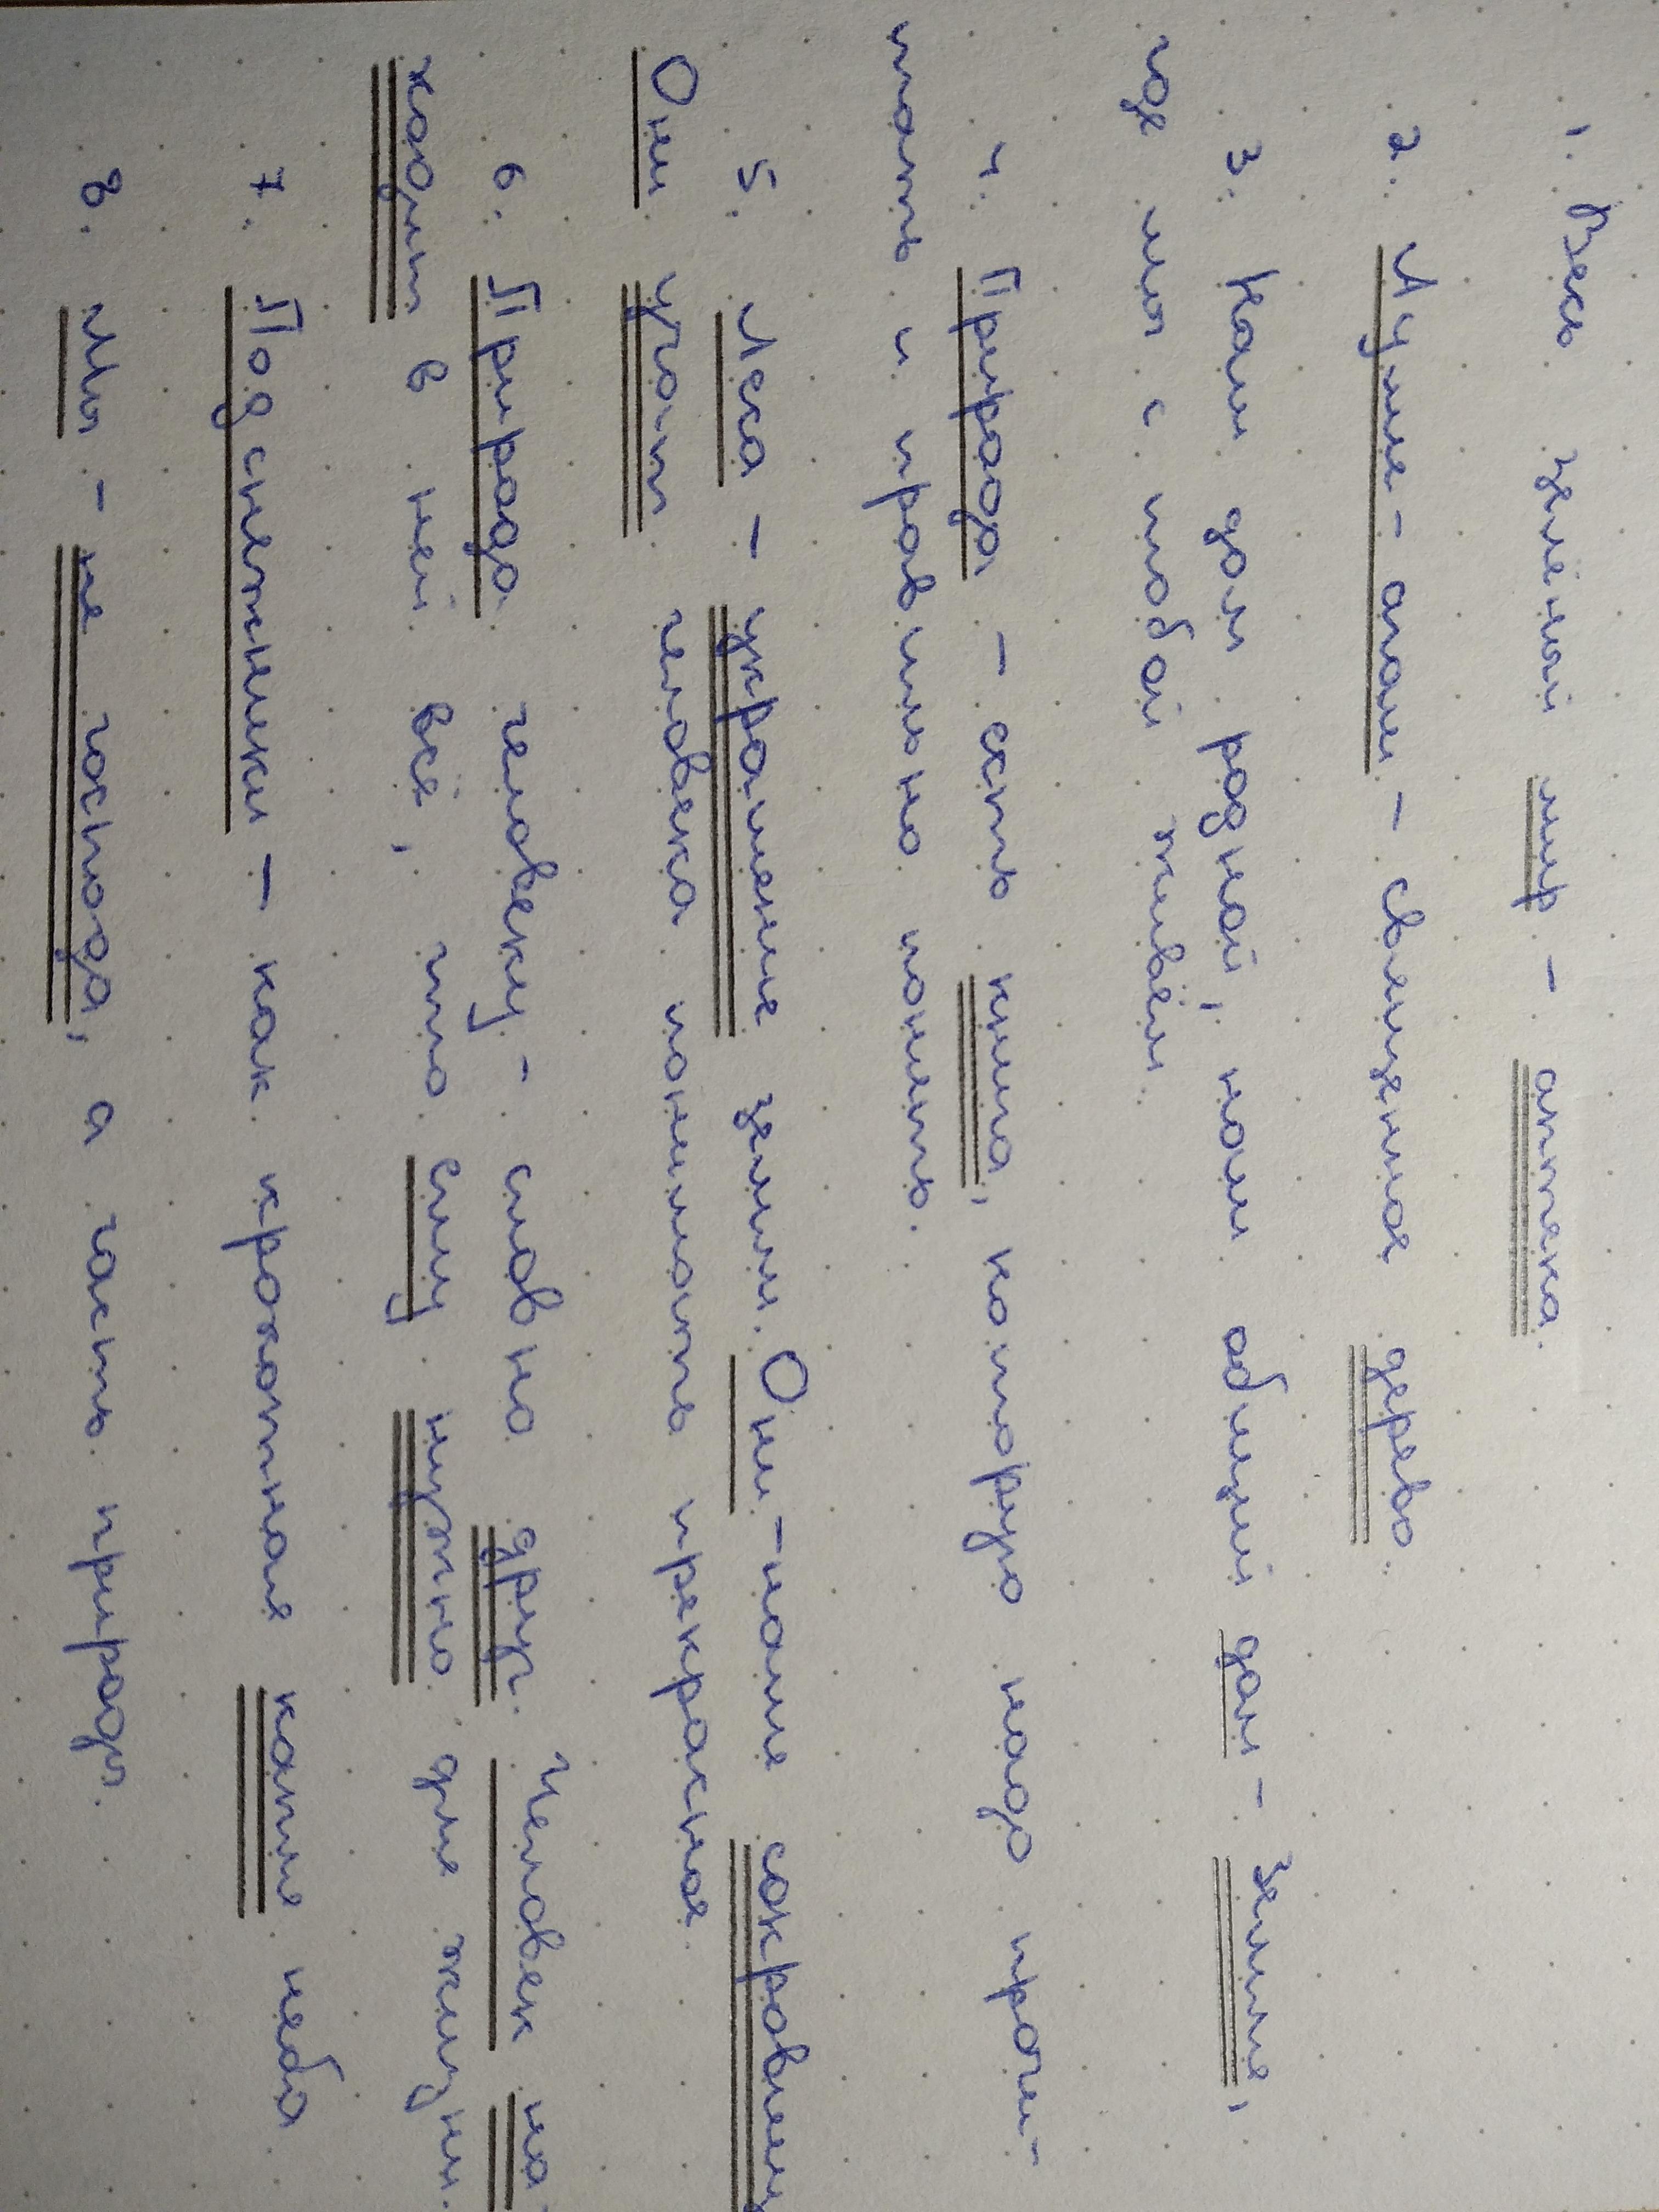 1. Весь зелёный мир - аптека.
2. Аулие-агаш - священное дерево.
3. Наш дом родной, наш общий дом - Земля,
где мы с тобой живём.
4. Природа - есть книга, которую надо прочи-
тать и правильно понять.
5. Леса - украшение земли. Они - наше сокровищ
Они учат человека понимать прекрасное.
6. Природа человеку - словно друг. Человек на-
ходит в ней всё, что ему нужно для жизни.
7. Подснежники - как крохотная капля неба
8. Мы - не господа, а часть природы.